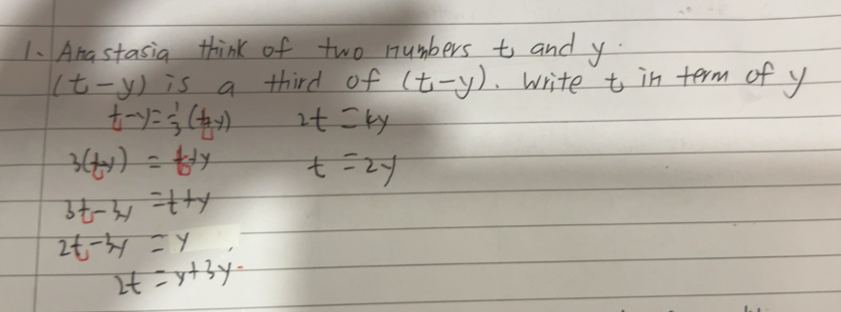 1. Anastasia think of two numbers t and y.
(t-y) is a third of (t-y). Write t in term of y
t-y=⅓(t+y)
3(t-y) = t+y
3t-3y =t+y
2t-3y = y
2t = y+3y
2t = 4y
t = 2y